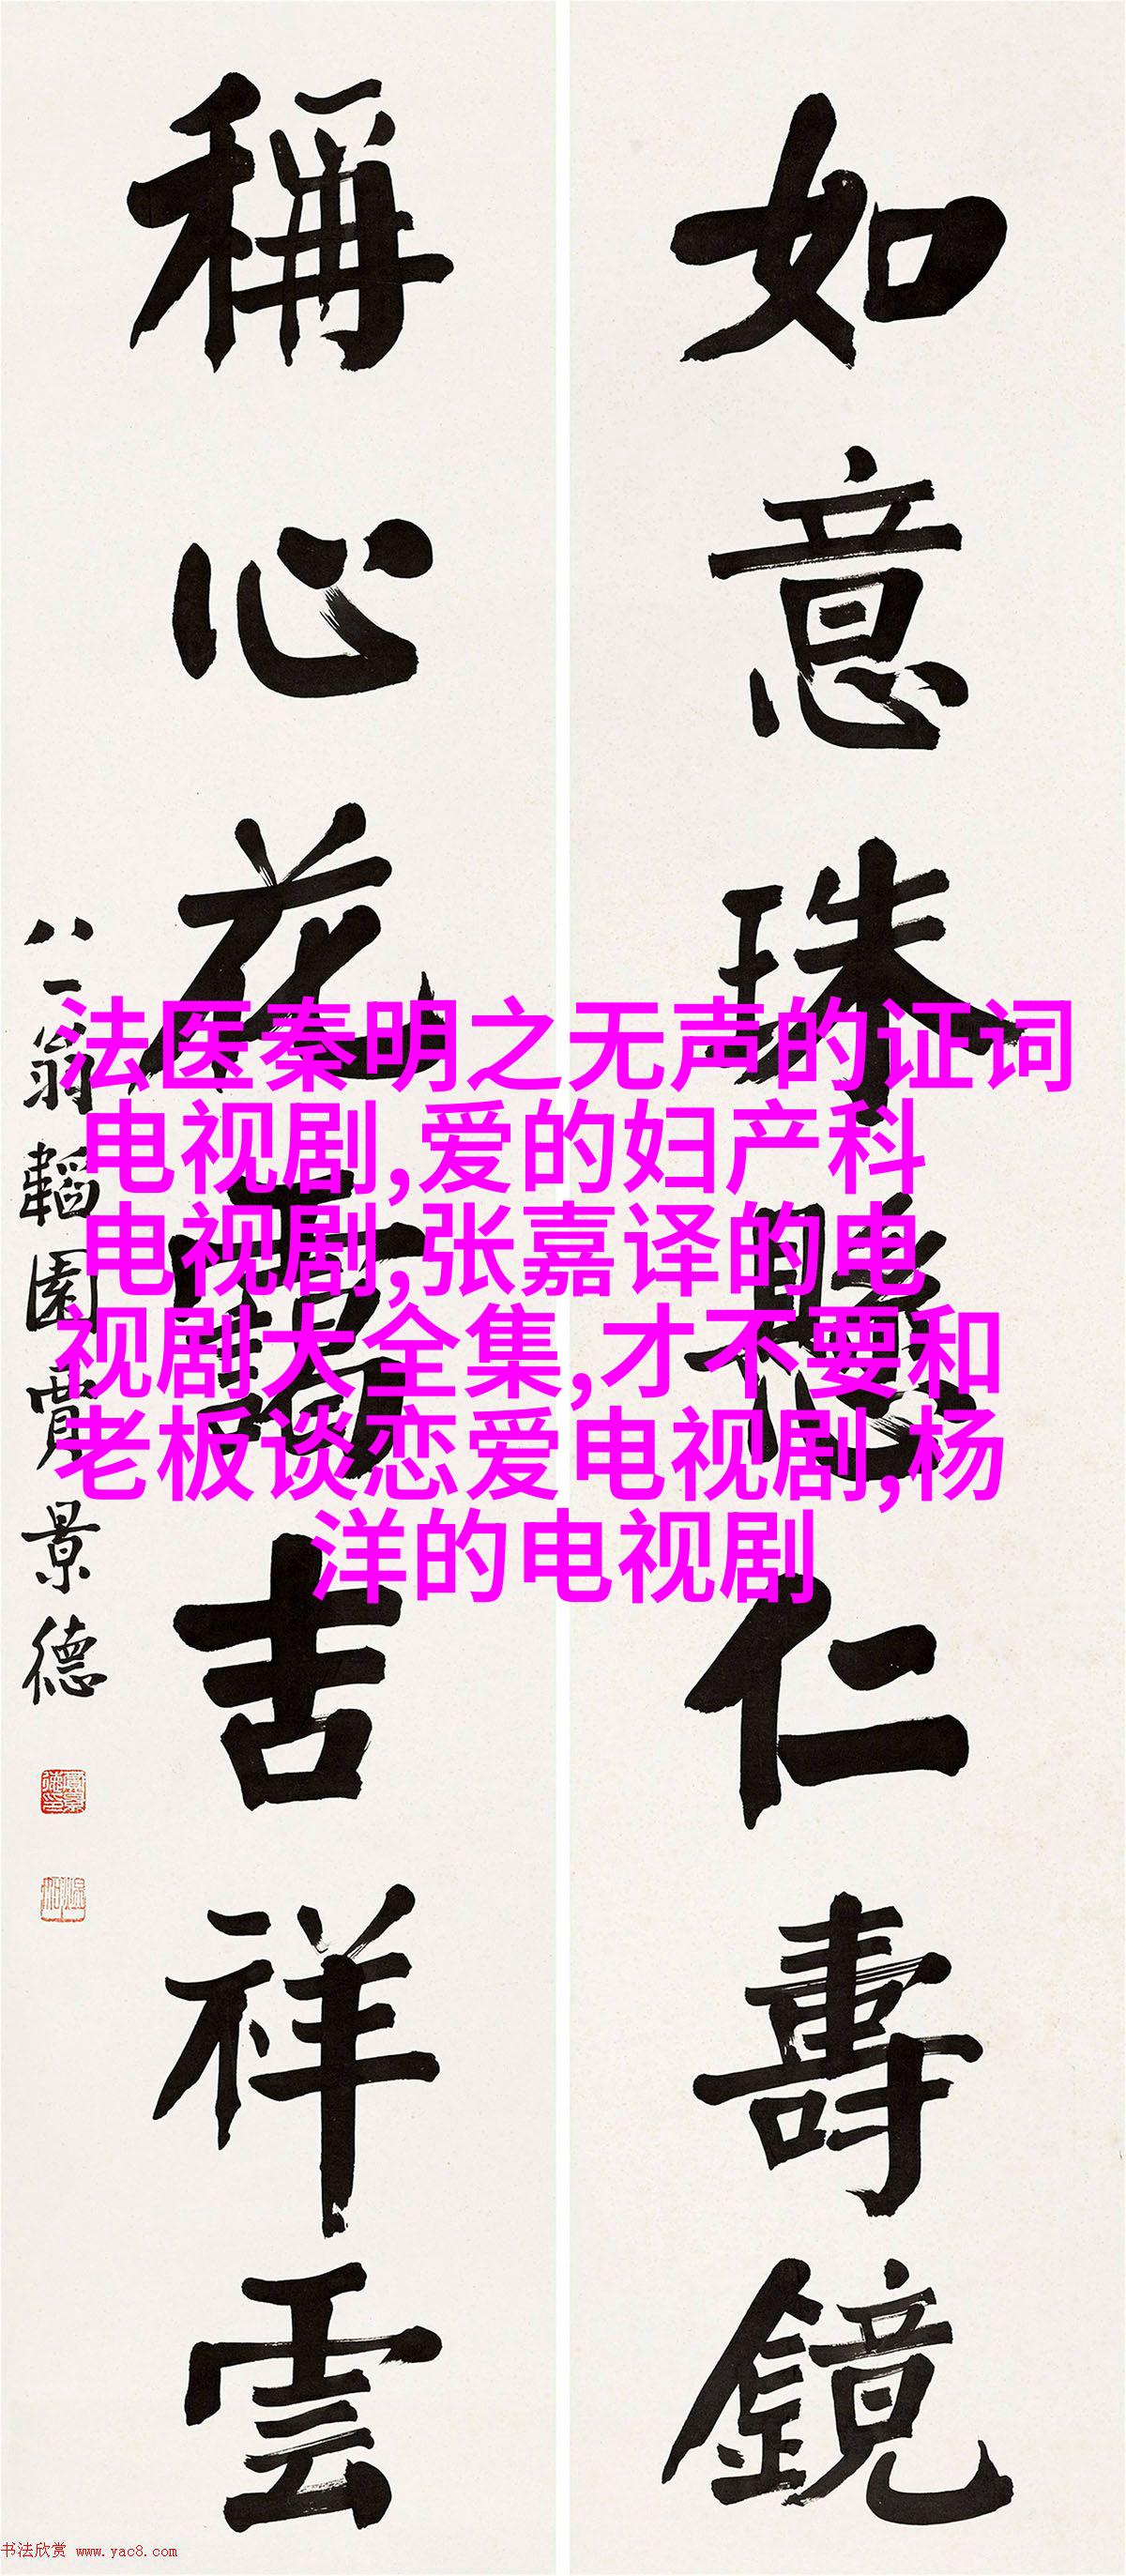 如意珠懸仁壽鏡
稱心花露吉祥雲
八一翁韜園賈景德
法医秦明之无声的证词
电视剧,爱的妇产科
电视剧,张嘉译的电
视剧大全集,才不要和
老板谈恋爱电视剧,杨
洋的电视剧
书法欣赏 www.yac8.com